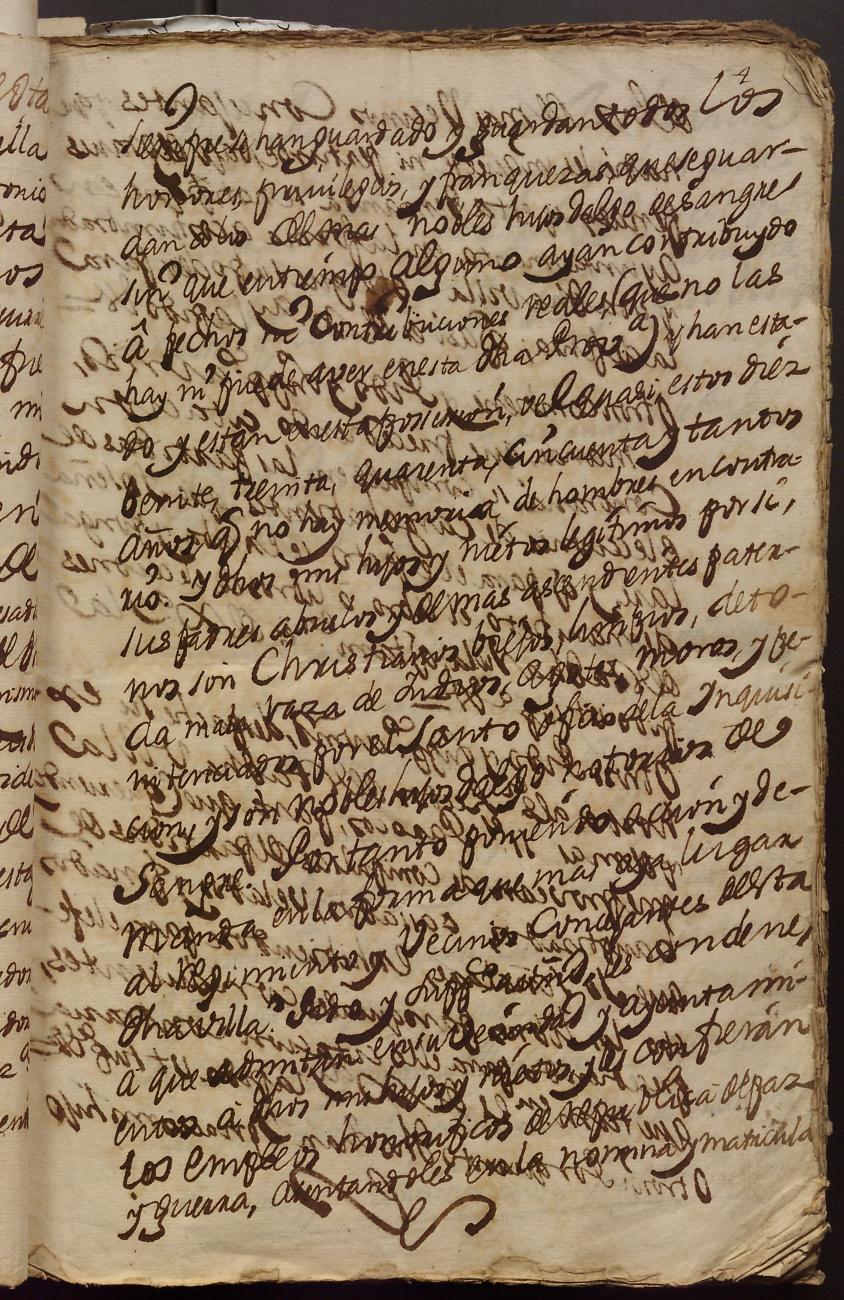 4
siempre se han guardado y guardan todos los
honores privilegios, y franquezas, que se guar-
dan a los demas nobles hijos dalgo de sangre
sin que en tiempo alguno ayan contribuydo
â pechos ni contribuciones reales (que no las
hay ni puede aver en esta dha Prov.a) y han esta-
do y están en esta posesion, vel quasi, estos diéz
beinte, treinta, quarenta, cinquenta y tantos
años q no hay memoria de hombres en contra-
rio. y dhos mis hijos y nietos legitimos por si,
sus padres abuelos y demas ascendentes pater-
nos son Christianos biejos, limpios, de to-
da mala raza de Judios, agotes, moros, y pe-
nitenciados por el Santo oficio de la Ynquisi-
cion, y son nobles hijos dalgo notorios de
Sangre. Por tanto poniendo accion y de-
manda en la forma que mas aya lugar
al Regimiento y Vecinos Concejantes desta
dha villa. Pido y supp.co a Vmd, les condene,
a que admitan en su vecindad y ayuntami-
entos a dhos mis hijos y nietos, y les confieran
los empleos honorificos de republica de paz
y guerra, asentandoles en la nomina y matricula